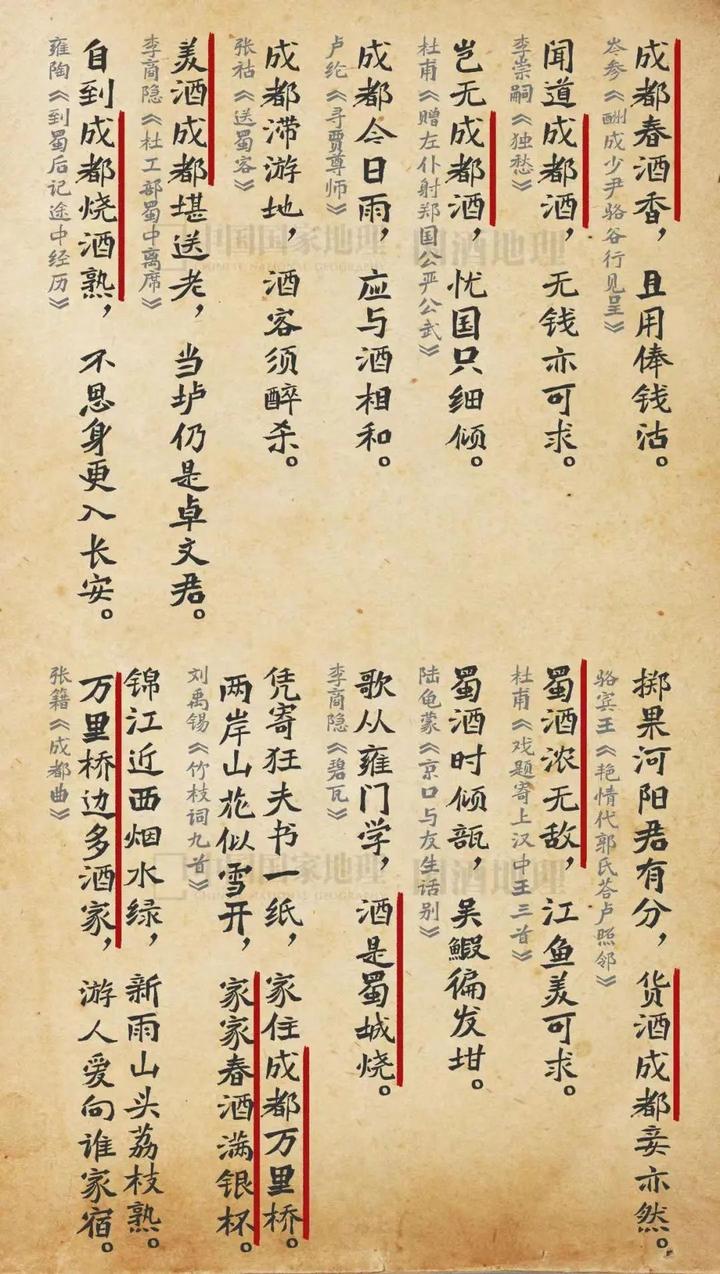 成都春酒香，且用俸钱沽。
岑参《酬成少尹骆谷行见呈》
闻道成都酒，无钱亦可求。
李崇嗣《独愁》
岂无成都酒，忧国只细倾。
杜甫《赠左仆射郑国公严公武》
成都今日雨，应与酒相和。
卢纶《寻贾尊师》
成都滞游地，酒客须醉杀。
张祜《送蜀客》
美酒成都堪送老，当垆仍是卓文君。
李商隐《杜工部蜀中离席》
自到成都烧酒熟，不思身更入长安。
雍陶《到蜀后记途中经历》
掷果河阳君有分，货酒成都妾亦然。
骆宾王《艳情代郭氏答卢照邻》
蜀酒浓无敌，江鱼美可求。
杜甫《戏题寄上汉中王三首》
蜀酒时倾瓿，吴鰕遍发坩。
陆龟蒙《京口与友生话别》
歌从雍门学，酒是蜀城烧。
李商隐《碧瓦》
凭寄狂夫书一纸，家住成都万里桥。
两岸山花似雪开，家家春酒满银杯。
刘禹锡《竹枝词九首》
锦江近西烟水绿，新雨山头荔枝熟。
万里桥边多酒家，游人爱向谁家宿。
张籍《成都曲》
中国国家地理
中国国家地理